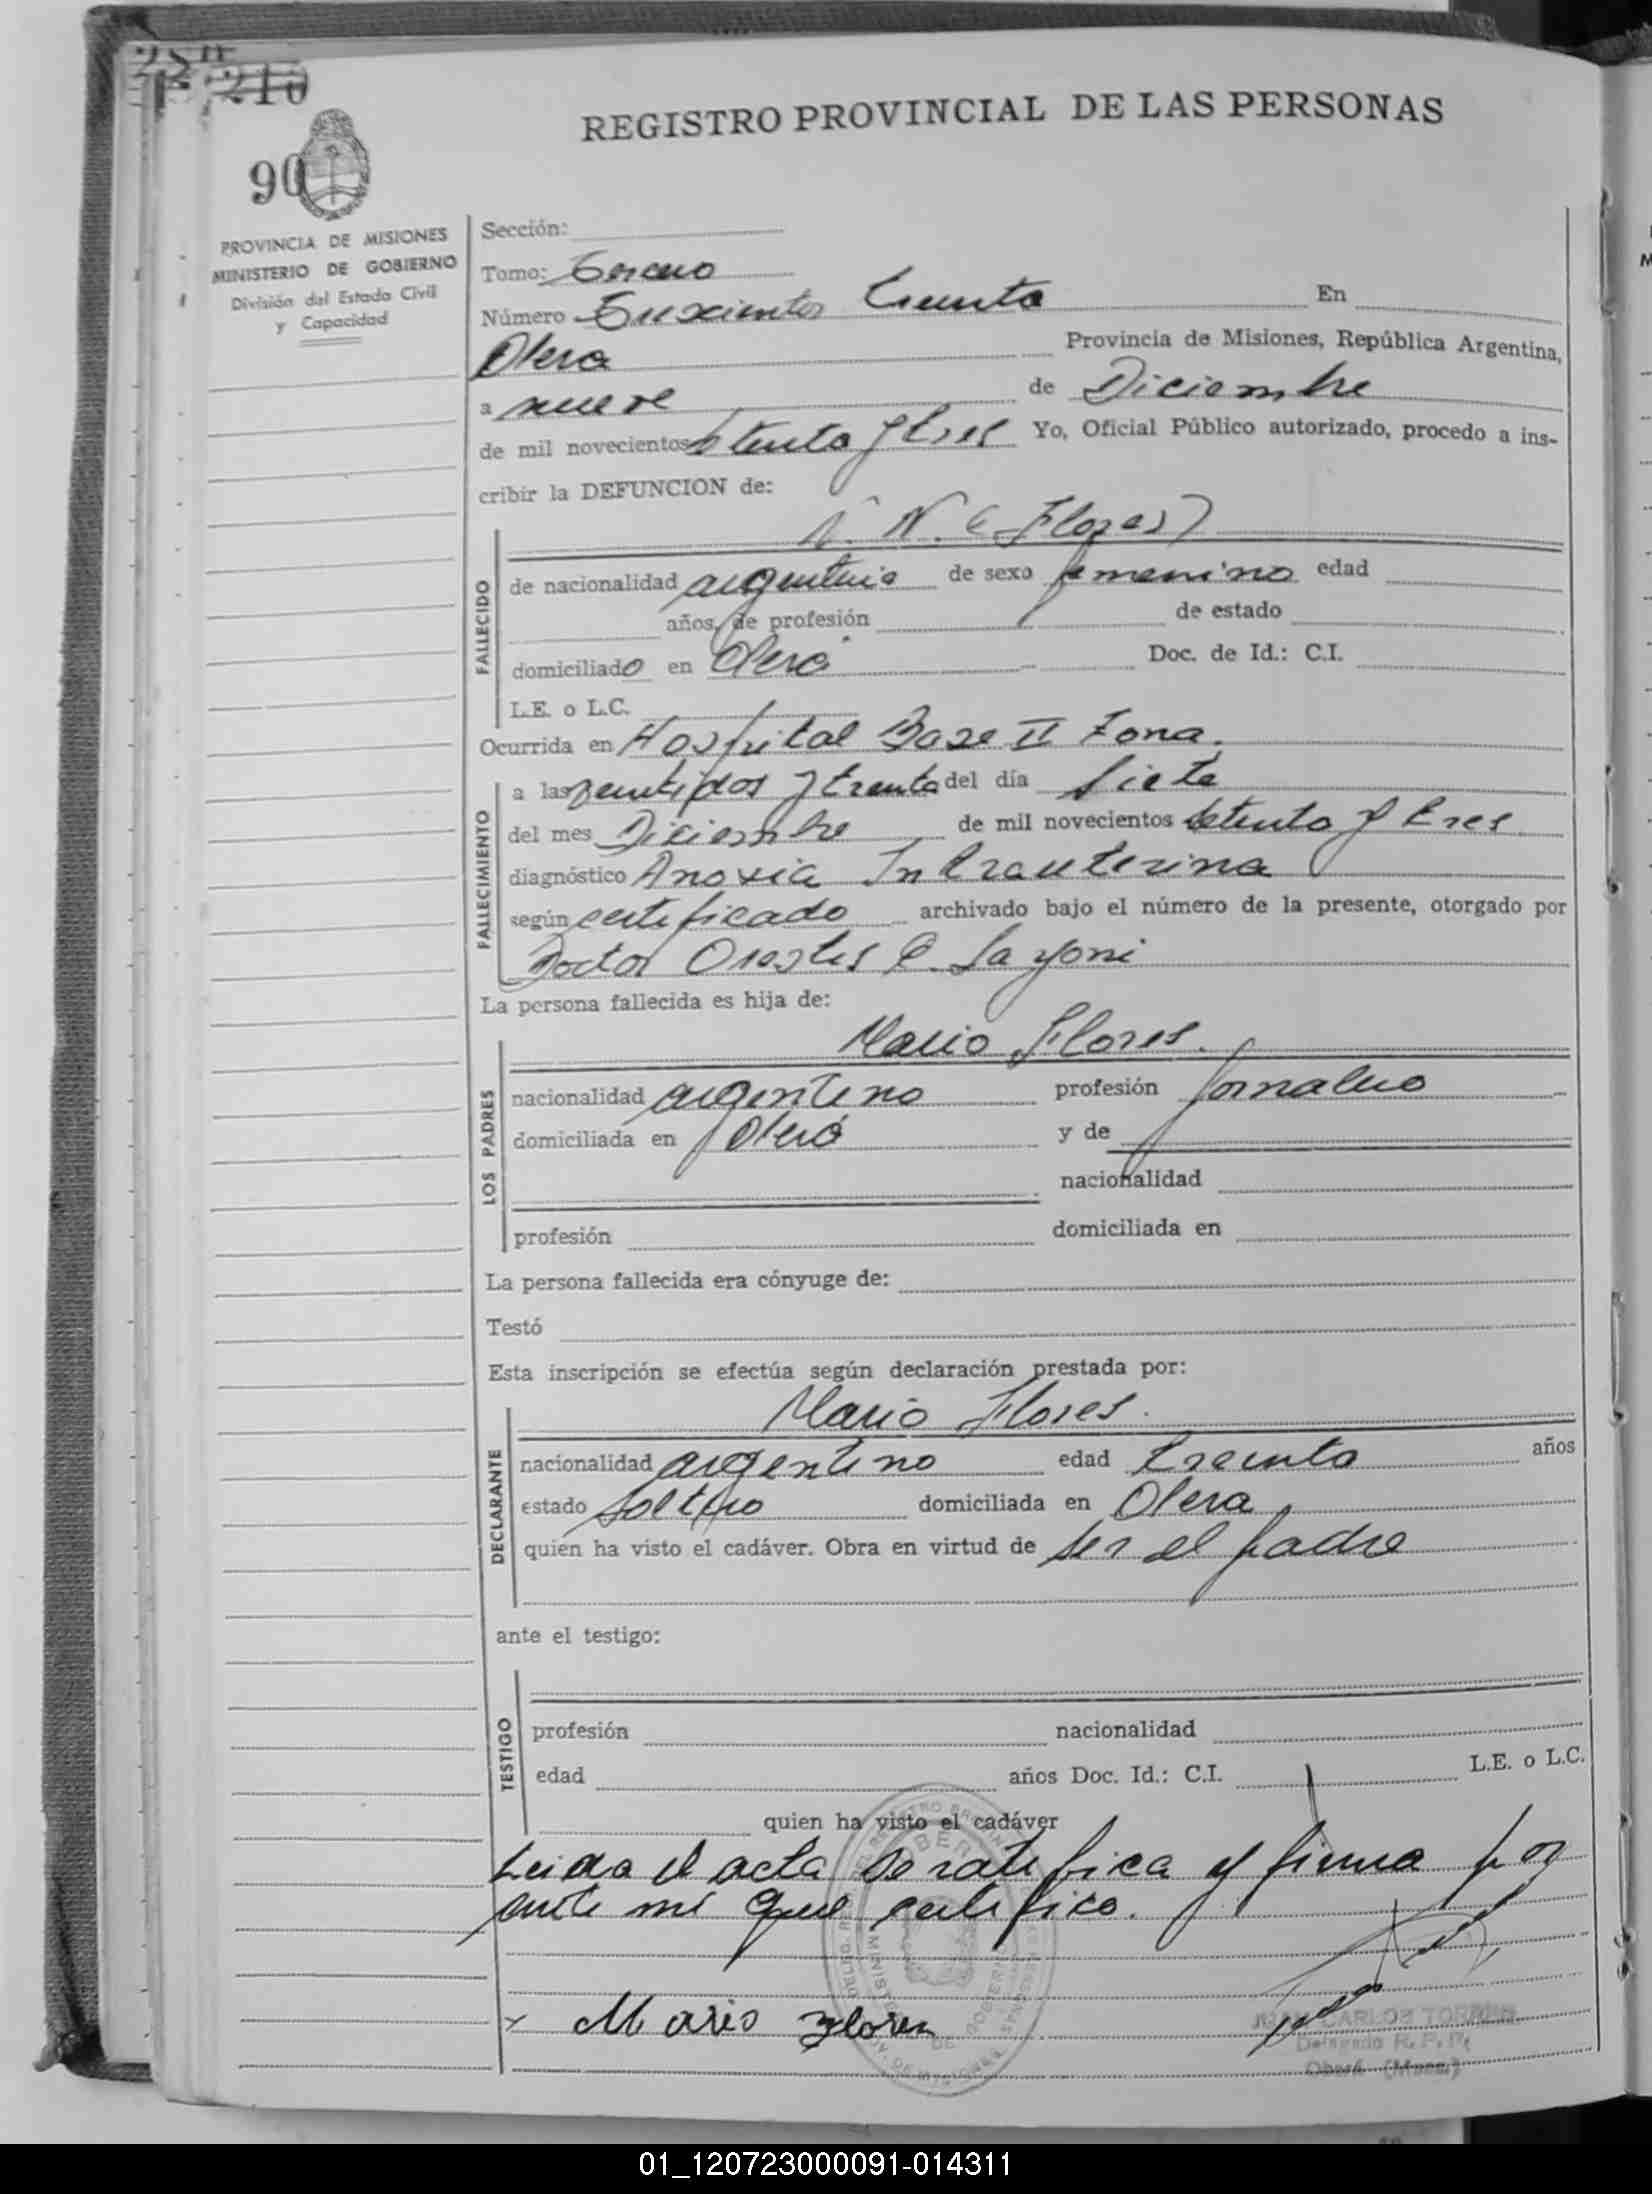 210
90
REGISTRO PROVINCIAL DE LAS PERSONAS
PROVINCIA DE MISIONES
MINISTERIO DE GOBIERNO
División del Estado Civil
y Capacidad
Sección:
Tomo: Tercero
Número Trescientos treinta En
Obera Provincia de Misiones, República Argentina,
a nueve de Diciembre
de mil novecientos setenta y tres Yo, Oficial Público autorizado, procedo a ins-
cribir la DEFUNCION de:
N. N. (Flores)
FALLECIDO
de nacionalidad argentina de sexo femenino edad
años, de profesión de estado
domiciliado en Oberá Doc. de Id.: C.I.
L.E. o L.C.
Ocurrida en Hospital Base II Zona.
FALLECIMIENTO
a las veintidos y treinta del día siete
del mes Diciembre de mil novecientos setenta y tres
diagnóstico Anoxia Intrauterina
según certificado archivado bajo el número de la presente, otorgado por
Doctor Orestes
La persona fallecida es hija de:
Mario Flores.
LOS PADRES
nacionalidad argentino profesión Jornalero
domiciliada en Oberá y de
nacionalidad
profesión domiciliada en
La persona fallecida era cónyuge de:
Testó
Esta inscripción se efectúa según declaración prestada por:
Mario Flores.
DECLARANTE
nacionalidad argentino edad treinta años
estado soltero domiciliada en Obera
quien ha visto el cadáver. Obra en virtud de ser el padre
ante el testigo:
TESTIGO
profesión nacionalidad
edad años Doc. Id.: C.I. L.E. o L.C.
quien ha visto el cadáver
Leida el acta se ratifica y firma por
ante mi que certifico.
x Mario Flores
JUAN CARLOS TORRES
Delegado R. P. P.
Oberá (Mnes.)
01_120723000091-014311